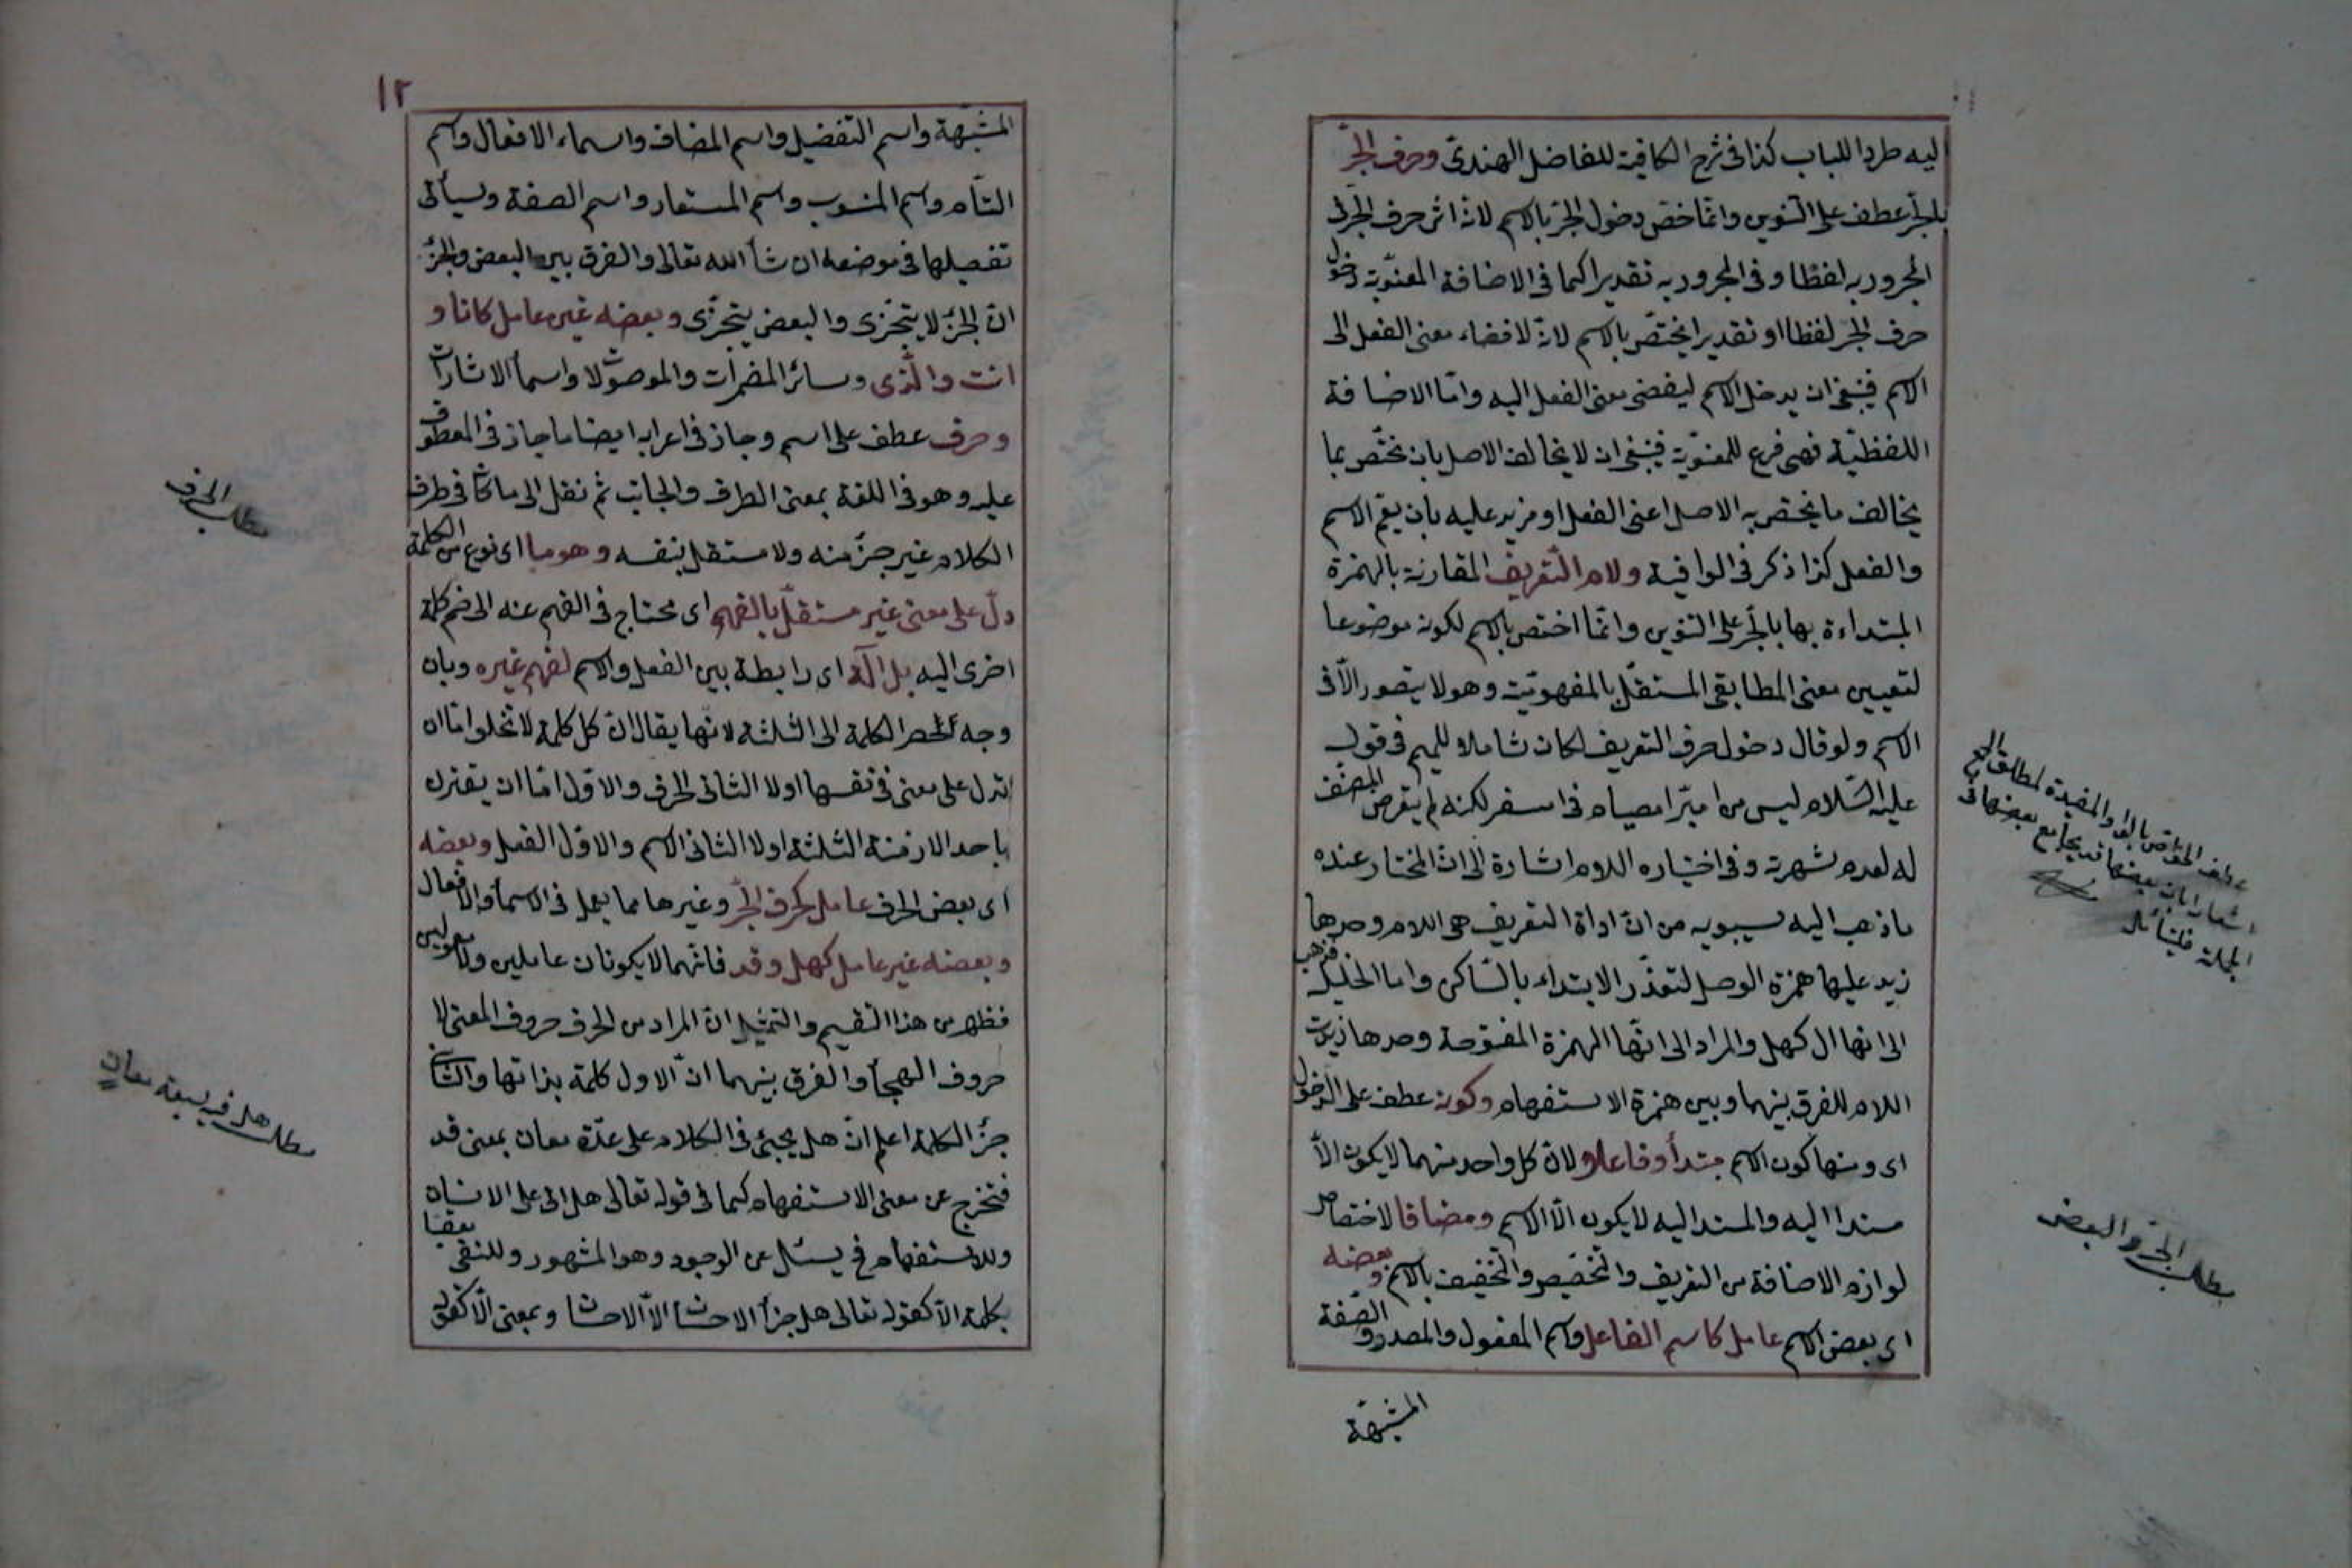 اليه طردا للباب كذا فى شرح الكافية للفاضل الهندىّ وحرف الجرّ
بلجرّ عطف على التنوين وانّما خصّ دخول الجرّ بالاسم لانّه اثر حرف الجرّ فى
المجرور به لفظا وفى المجرور به تقديرا كما فى الاضافة المعنويّة ودخول
حرف الجرّ لفظا او تقديرا يختصّ بالاسم لانّه لافضاء معنى الفعل الى
الاسم فينبغى ان يدخل الاسم ليفضى معنى الفعل اليه وامّا الاضافة
اللفظيّة فهى فرع للمعنويّة فينبغى ان لا يخالف الاصل بان يختّص بما
يخالف ما يختصّ به الاصل اعنى الفعل او مزيد عليه بان يعّم الاسم
والفعل كذا ذكر فى الوافية ولام التّعريف المقارنة بالهمزة
المبتداءة بها بالجّر على التنوين وانّما اختصّ بالاسم لكونه موضوعا
لتعيين معنى المطابقى المستقلّ بالمفهوميّت وهو لا يتصور الاّ فى
الاسم ولو قال دخول حرف التعريف لكان شاملا للميم فى قوله
عليه السّلام ليس من امبرّ امصيام فى امسفر لكنه لم يتعرض المصنّف
له لعدم شهرته وفى اختياره اللام اشارة الى انّ المختار عنده
ما ذهب اليه سيبويه من انّ اداة التعريف هى اللام وحدها
زيد عليها همزة الوصل لتعذّر الابتداء بالسّاكن واما الخليل فذهب
الى انها ال كهل والمراد الى انّها الهمزة المفتوحة وحدها زيدت
اللام للفرق بينها وبين همزة الاستفهام وكونه عطف على الدّخول
اى ومنها كون الاسم مبتدأ وفاعلا ولانّ كل واحد منهما لا يكون الاّ
مسندا اليه والمسند اليه لا يكون الّا الاسم ومضافا لاختصاص
لوازم الاضافة من التعريف والتّخصّيص والتّخفيف بالاسم وبعضه
اى بعض الاسم عامل كاسم الفاعل واسم المفعول والمصدر والصّفة
المشبّهة
عطف الخاص بالواو المفيدة لمطلق الجمع
اشعارا بان بعضها قد يجامع بعضها فى
الجملة فليتأمّل
مطلب الجزء والبعض
١٢
المشبّهة واسم التفضيل واسم المضاف واسماء الافعال واسم
التّام واسم المنسوب واسم المستعار واسم الصفة وسيأتى
تفصيلها فى موضعه ان شأ الله تعالى والفرق بين البعض والجزء
انّ الجزء لا يتجزى والبعض يتجزّى وبعضه غير عامل كانا و
انت والّذى وسائر المضمرات والموصولات واسمأ الاشارات
وحرف عطف على اسم وجاز فى اعرابه ايضا ما جاز فى المعطوف
عليه وهو فى اللغة بمعنى الطرف والجانب ثم نقل الى ما كان فى طرف
الكلام غير جزء منه ولا مستقل بنفسه وهو ما اى نوع من الكلمة
دلّ على معنى غير مستقلّ بالفهم اى محتاج فى الفهم عنه الى ضم كلمة
اخرى اليه بل آلة اى رابطة بين الفعل والاسم لفهم غيره وبان
وجه الحصر الكلمة الى الثلثة لانّها يقال انّ كل كلمة لا تخلوا امّا ان
تدل على معنى فى نفسها اولا الثانى الحرف والاوّل امّا ان يقترن
باحد الازمنة الثلثة اولا الثانى الاسم والاوّل الفعل وبعضه
اى بعض الحرف عامل كحرف الجرّ وغيرها مما يعمل فى الاسمأ والافعال
وبعضه غير عامل كهل وقد فانّهما لا يكونان عاملين ولا معمولين
فظهر من هذا التقسيم والتمثيل انّ المراد من الحرف حروف المعنى لا
حروف الهجأ والفرق بينهما انّ الاول كلمة بذاتها والثانى
جزء الكلمة اعلم انّ هل يجئ فى الكلام على عدّة معان بمعنى قد
فتخرج عن معنى الاستفهام كما فى قوله تعالى هل اتى على الانسان
وللاستفهام فح يسئل عن الوجود وهو المشهور وللنفى
بكلمة الاّ كقوله تعالى هل جزأ الاحسان الاّ الاحسان وبمعنى الّا كقوله
مطلب الحرف
مطلب هل فيه سبعة معان